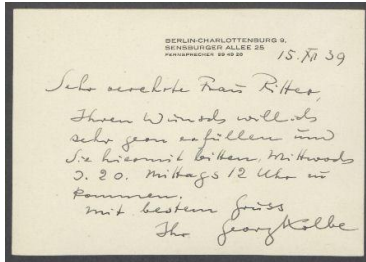 BERLIN-CHARLOTTENBURG 9,
SENSBURGER ALLEE 25
FERNSPRECHER 99 40 25
15. XII 39
Sehr verehrte Frau Ritter,
Ihren Wunsch will ich
sehr gern erfüllen und
Sie hiermit bitten, Mittwoch
d. 20. Mittags 12 Uhr zu
kommen.
Mit bestem Gruss
Ihr Georg Kolbe